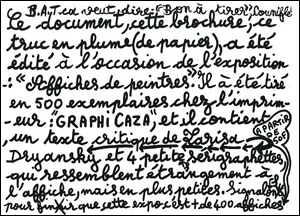 B.A.T. ça veut dire: "Bon à tirer"
Ce document, cette brochure, ce
truc en plume (de papier), a été
édité à l'occasion de l'exposition
: «Affiches de peintres». Il à été tiré
en 500 exemplaires chez l'imprim-
-eur: GRAPHI CAZA, et il contient,
un texte critique de Larisa
Dryansky et 4 petites sérigraphettes,
qui ressemblent étrangement à
l'affiche, mais en plus petites. Signalons
pour finir que cette expo c'est + de 400 affiches
A PARTIR
DE